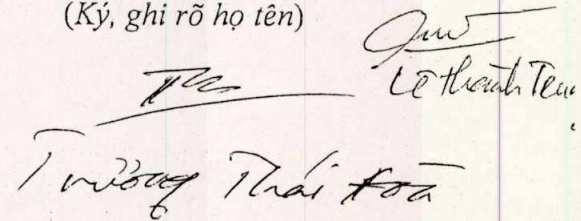 (Ký, ghi rõ họ tên)
Lê thành
Trường Thái Hòa